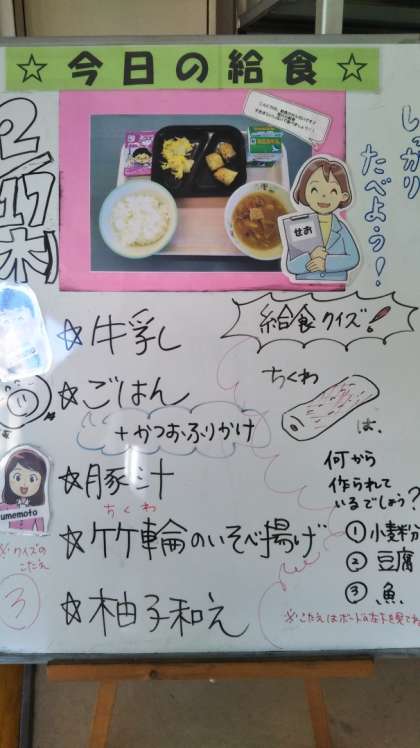 ☆今日の給食☆
2/17(木)
しっかり
たべよう!
せお
☆牛乳
☆ごはん
+かつおふりかけ
☆豚汁
ちくわ
☆竹輪のいそべ揚げ
☆柚子和え
umemoto
※クイズの
こたえ
③
給食クイズ!
ちくわ
は、
何から
作られて
いるでしょう?
①小麦粉
②豆腐
③魚
※こたえはボードの左下を見てね